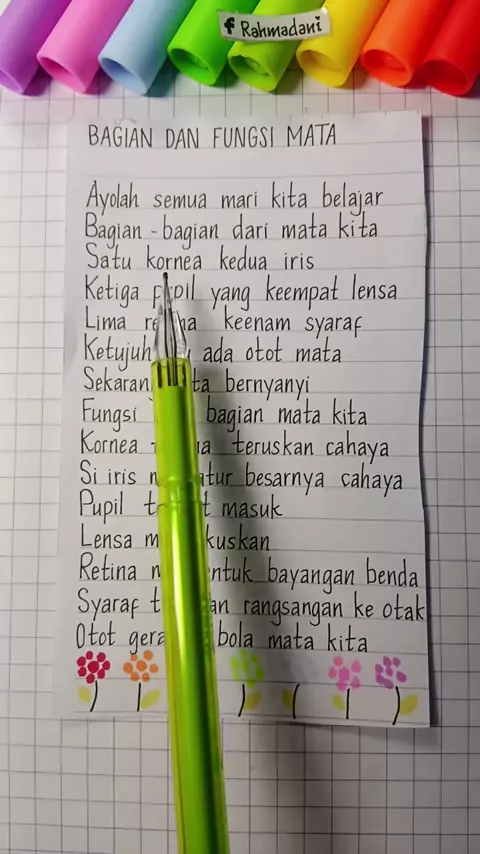 f Rahmadani
BAGIAN DAN FUNGSI MATA
Ayolah semua mari kita belajar
Bagian-bagian dari mata kita
Satu kornea kedua iris
Ketiga pupil yang keempat lensa
Lima keenam syaraf
Ketujuh ada otot mata
Sekarang bernyanyi
Fungsi bagian mata kita
Kornea teruskan cahaya
Si iris besarnya cahaya
Pupil masuk
Lensa
Retina bayangan benda
Syaraf rangsangan ke otak
Otot bola mata kita